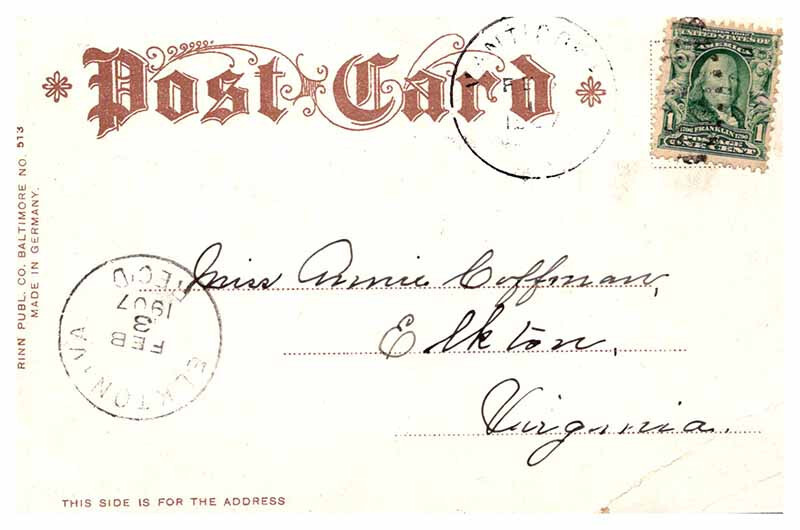 Post Card
SERIES 1902
UNITED STATES OF
AMERICA
1 1706 FRANKLIN 1790 1
POSTAGE
ONE CENT
RINN PUBL. CO. BALTIMORE NO. 513
MADE IN GERMANY.
Miss Annie Coffman,
Elkton,
Virginia.
ELKTON, VA
FEB
3
1907
REC'D
THIS SIDE IS FOR THE ADDRESS